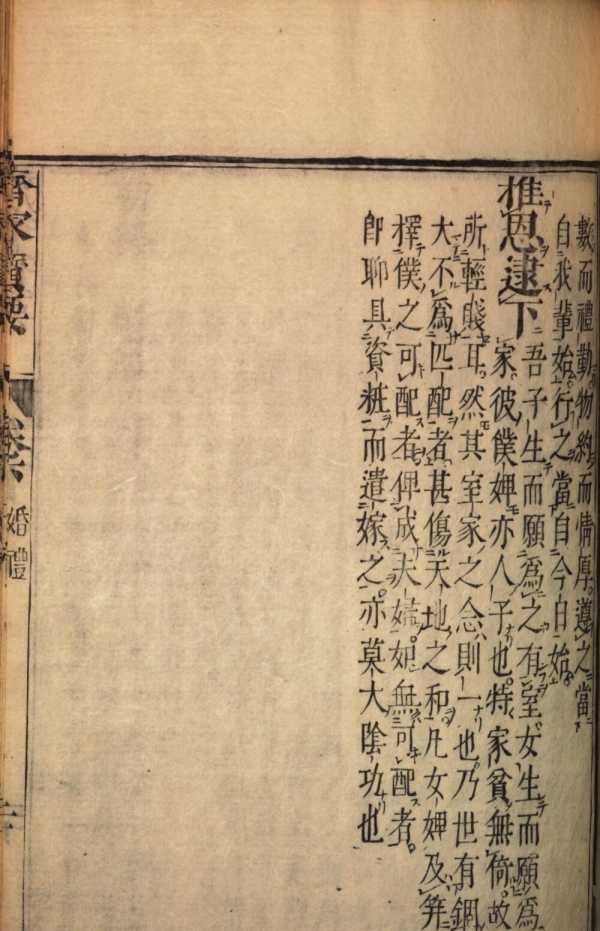 數而禮勤。物約而情厚。遵之當
自我輩始。行之當自今日始。
推恩逮下
吾子生而願為之有室。女生而願為
家。彼僕婢亦人子也。特家貧無倚。故
所輕賤耳。然其室家之念。則一也。乃世有錮
大不為匹配者。甚傷天地之和。凡女婢及笄
擇僕之可配者。俾成夫婦。如無可配者。
即聊具資粧而遣嫁之。亦莫大陰功也
齊家寶要
卷
婚禮